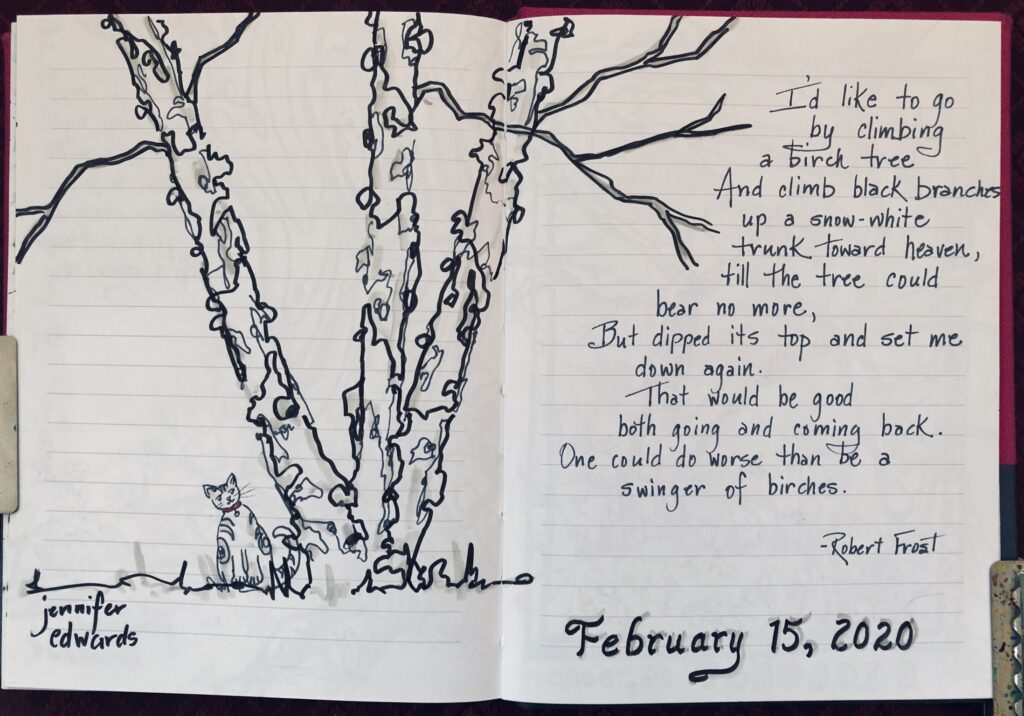 I'd like to go
by climbing
a birch tree
And climb black branches
up a snow-white
trunk toward heaven,
till the tree could
bear no more,
But dipped its top and set me
down again.
That would be good
both going and coming back.
One could do worse than be a
swinger of birches.
-Robert Frost
jennifer
edwards
February 15, 2020